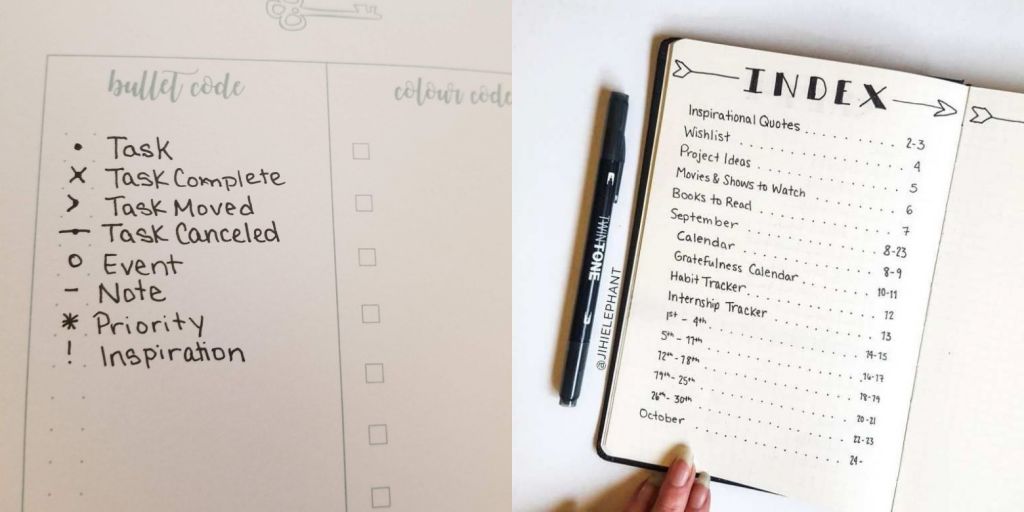 bullet code
• Task
x Task Complete
> Task Moved
-•- Task Canceled
o Event
– Note
* Priority
! Inspiration
colour code
INDEX
Inspirational Quotes . . . . . . . . 2-3
Wishlist . . . . . . . . 4
Project Ideas . . . . . . . . 5
Movies & Shows to Watch . . . . . . . . 6
Books to Read . . . . . . . . 7
September . . . . . . . . 8-23
Calendar . . . . . . . . 8-9
Gratefulness Calendar . . . . . . . . 10-11
Habit Tracker . . . . . . . . 12
Internship Tracker . . . . . . . . 13
1st - 4th . . . . . . . . 14-15
5th - 11th . . . . . . . . 16-17
12th - 18th . . . . . . . . 18-19
19th - 25th . . . . . . . . 20-21
26th - 30th . . . . . . . . 22-23
October . . . . . . . . 24-
TWINTONE
@JIHIELEPHANT